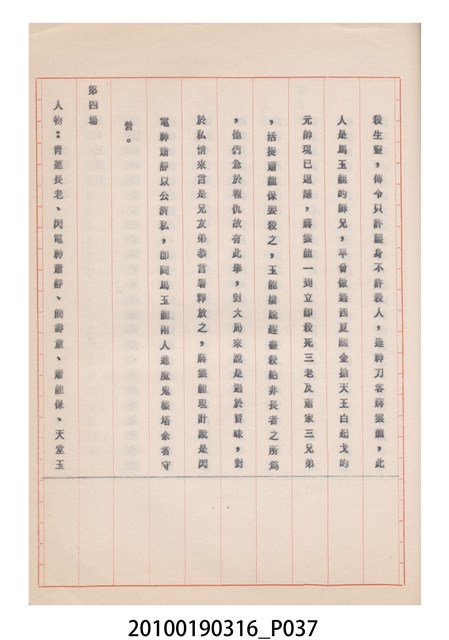 我生擊,傳令只許護身不許殺人,是神刀客蔣雲龍,此
人是馬玉龍的師兄,早曾做過西夏國金搶天王白起戈的
元帥現已退隱,蔣雲龍一到立即救死三老及蕭家三兄弟
,活捉蕭龍保要殺之,玉龍搶說趕盡殺絕非長者之所為
,他們急於報仇故有此舉,對大局來說是過於冒昧,對
於私情來言是兄友弟恭言畢釋放之,蔣雲龍現計說是閃
電神蕭靜以公濟私,即同馬玉龍兩人進魔鬼樓塔余者守
營。
第四場
人物:青蓮長老、閃電神蕭靜、簡壽童、蕭龍保、天堂玉
20100190316_P037